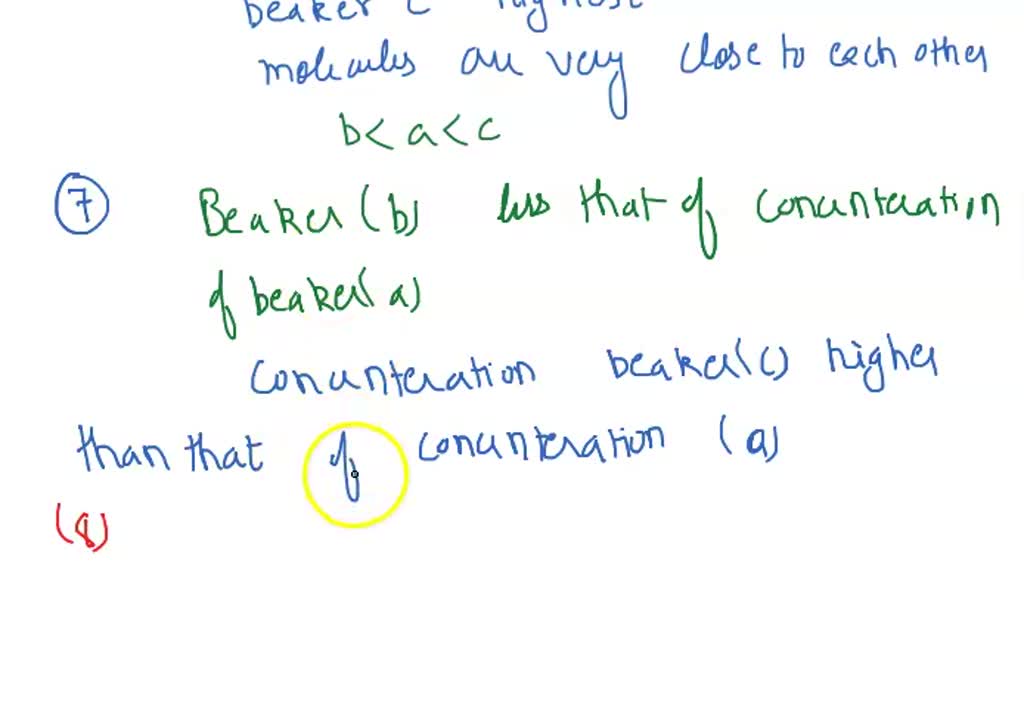 beaker c highest
molecules are very close to each other
b < a < c
7 Beaker (b) less that of concunteration
of beaker(a)
concunteration beaker(c) higher
than that of concunteration (a)
(8)